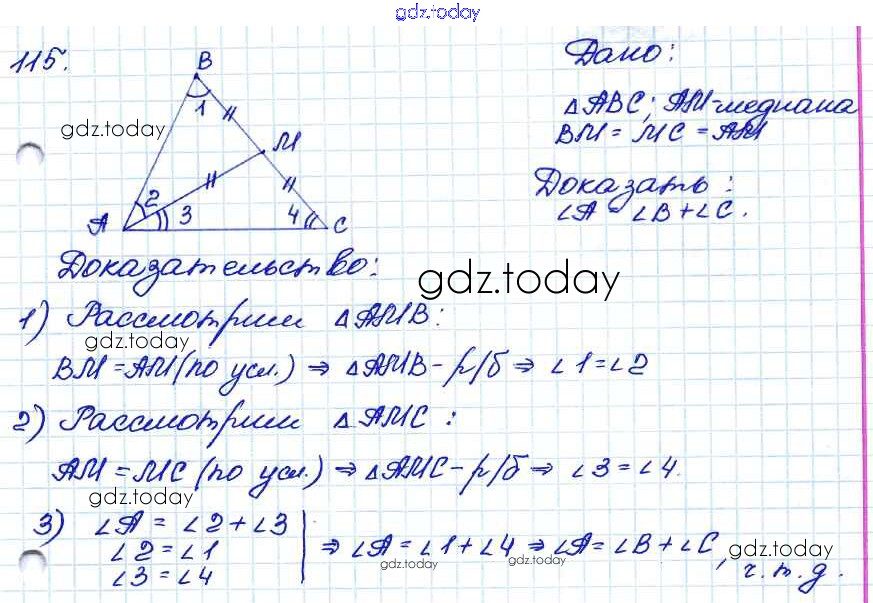 gdz.today
115.
B
1
M
2
3
4
A
C
gdz.today
Дано:
△ABC; AM-медиана
BM = MC = AM
Доказать:
∠A = ∠B + ∠C.
Доказательство:
gdz.today
1) Рассмотрим △AMB:
gdz.today
BM = AM (по усл.) ⇒ △AMB - р/б ⇒ ∠1 = ∠2
2) Рассмотрим △AMC:
AM = MC (по усл.) ⇒ △AMC - р/б ⇒ ∠3 = ∠4.
gdz.today
3) ∠A = ∠2 + ∠3
∠2 = ∠1
∠3 = ∠4
⇒ ∠A = ∠1 + ∠4 ⇒ ∠A = ∠B + ∠C,
ч.т.д.
gdz.today
gdz.today
gdz.today